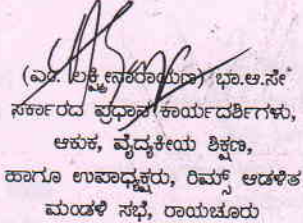 (ಎಂ. ಲಕ್ಷ್ಮೀನಾರಾಯಣ) ಭಾ.ಆ.ಸೇ
ಸರ್ಕಾರದ ಪ್ರಧಾನ ಕಾರ್ಯದರ್ಶಿಗಳು,
ಆಕುಕ, ವೈದ್ಯಕೀಯ ಶಿಕ್ಷಣ,
ಹಾಗೂ ಉಪಾಧ್ಯಕ್ಷರು, ರಿಮ್ಸ್ ಆಡಳಿತ
ಮಂಡಳಿ ಸಭೆ, ರಾಯಚೂರು